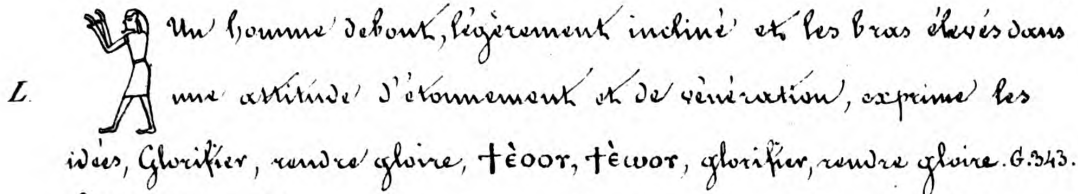 Un homme debout, légèrement incliné et les bras élevés dans
L. une attitude d'étonnement et de vénération, exprime les
idées, Glorifier, rendre gloire, ϯⲉ̀ⲟⲟⲩ, ϯⲉ̀ⲱⲟⲩ, glorifier, rendre gloire. G. 343.